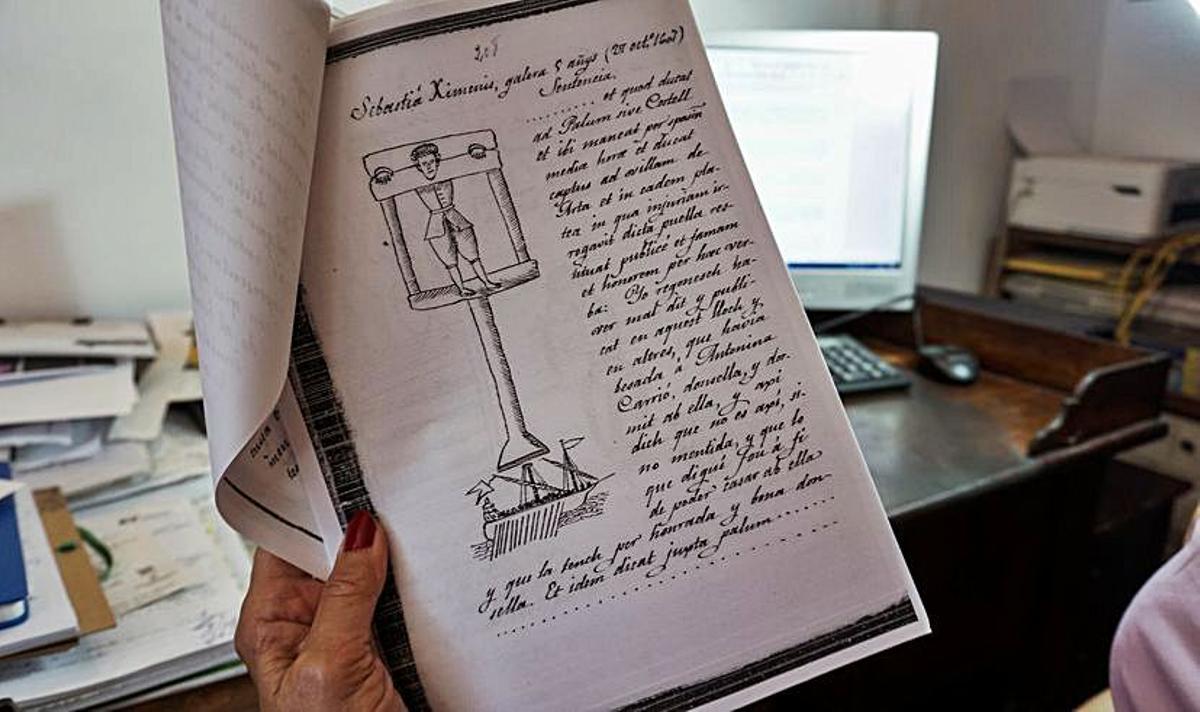 208
Sebastiá Ximenis, galera 5 añys (27 oct.e 1607)
Sentencia.
........ et quod ducat
ad Palum sive Costell
et ibi maneat per spatiū
mediæ horæ et ducat
captus ad villam de
Arta et in eadem pla-
tea in qua injuriam ir-
rogavit dicta puella res-
tituat publice et famam
et honorem per hæc ver-
ba: Yo regonesch ha-
ver mal dit y publi-
cat en aquest lloch y
en altres, que havia
besada á Antonina
Carrió, donsella, y dor-
mit ab ella, y axí
dich que no es axí, si-
no mentida, y que lo
que diguí fou á fi
de poder casar ab ella
y que la tench per honrada y bona don-
sella. Et idem dicat juxta palum ........